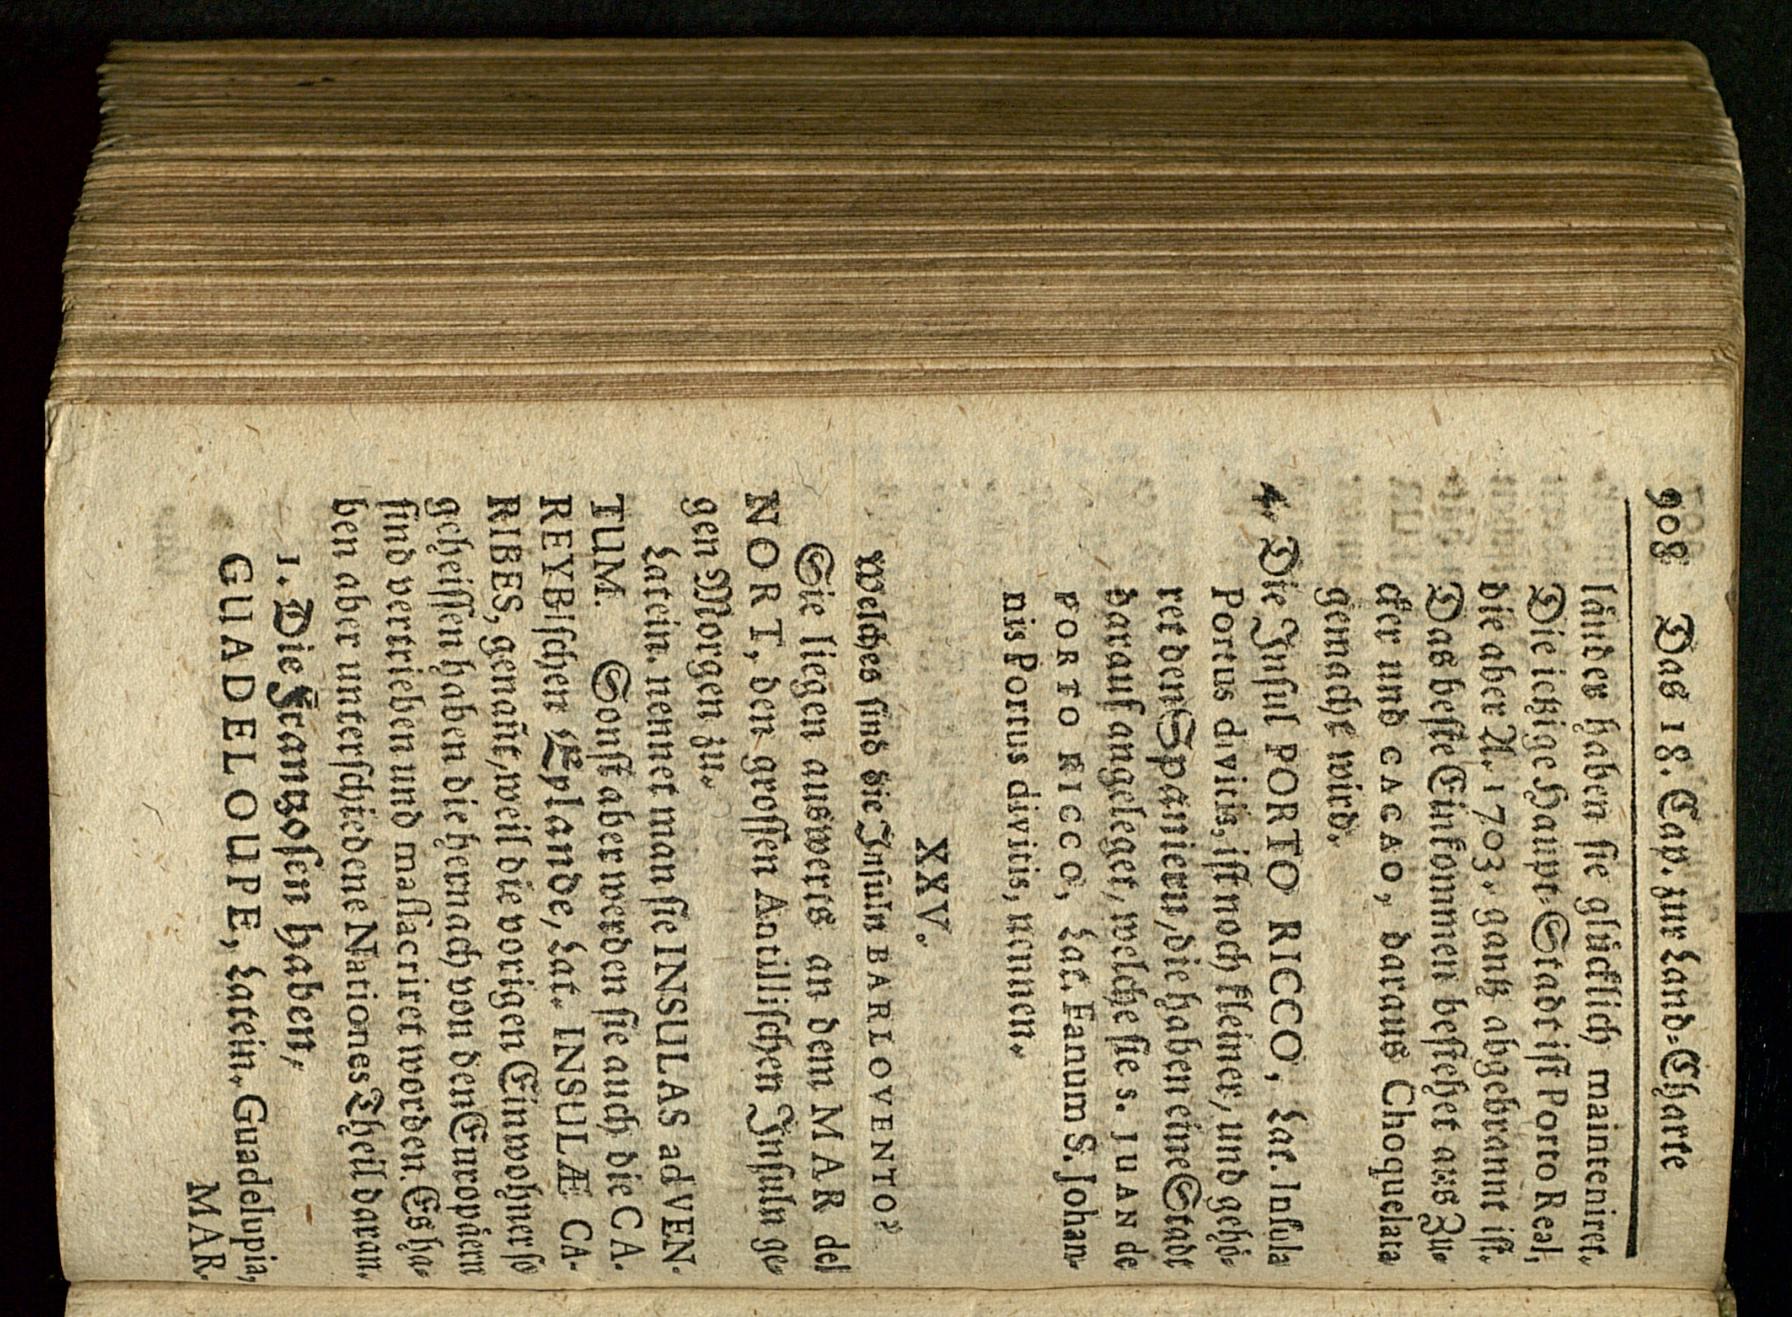 908 Das 18. Cap. zur Land-Charte
länder haben sie glücklich mainteniret.
Die ietzige Haupt-Stadt ist Porto Real,
die aber A. 1703. gantz abgebrannt ist.
Das beste Einkommen bestehet aus Zu-
cker und CACAO, daraus Choquelata
gemacht wird.
4. Die Insul PORTO RICCO, Lat. Insula
Portus divitis, ist noch kleiner, und gehö-
ret den Spaniern, die haben eine Stadt
darauf angeleget, welche sie S. JUAN de
PORTO RICCO, Lat. Fanum S. Johan-
nis Portus divitis, nennen.
XXV.
Welches sind die Insuln BARLOVENTO?
Sie liegen auswerts an dem MAR del
NORT, den grossen Antillischen Insuln ge-
gen Morgen zu.
Latein. nennet man sie INSULAS ad VEN-
TUM. Sonst aber werden sie auch die CA-
REYBischen Eylande, Lat. INSULÆ CA-
RIBES, genañt, weil die vorigen Einwohner so
geheissen haben die hernach von den Europäern
sind vertrieben und massacriret worden. Es ha-
ben aber unterschiedene Nationes Theil daran.
1. Die Frantzosen haben,
GUADELOUPE, Latein. Guadelupia,
MAR-